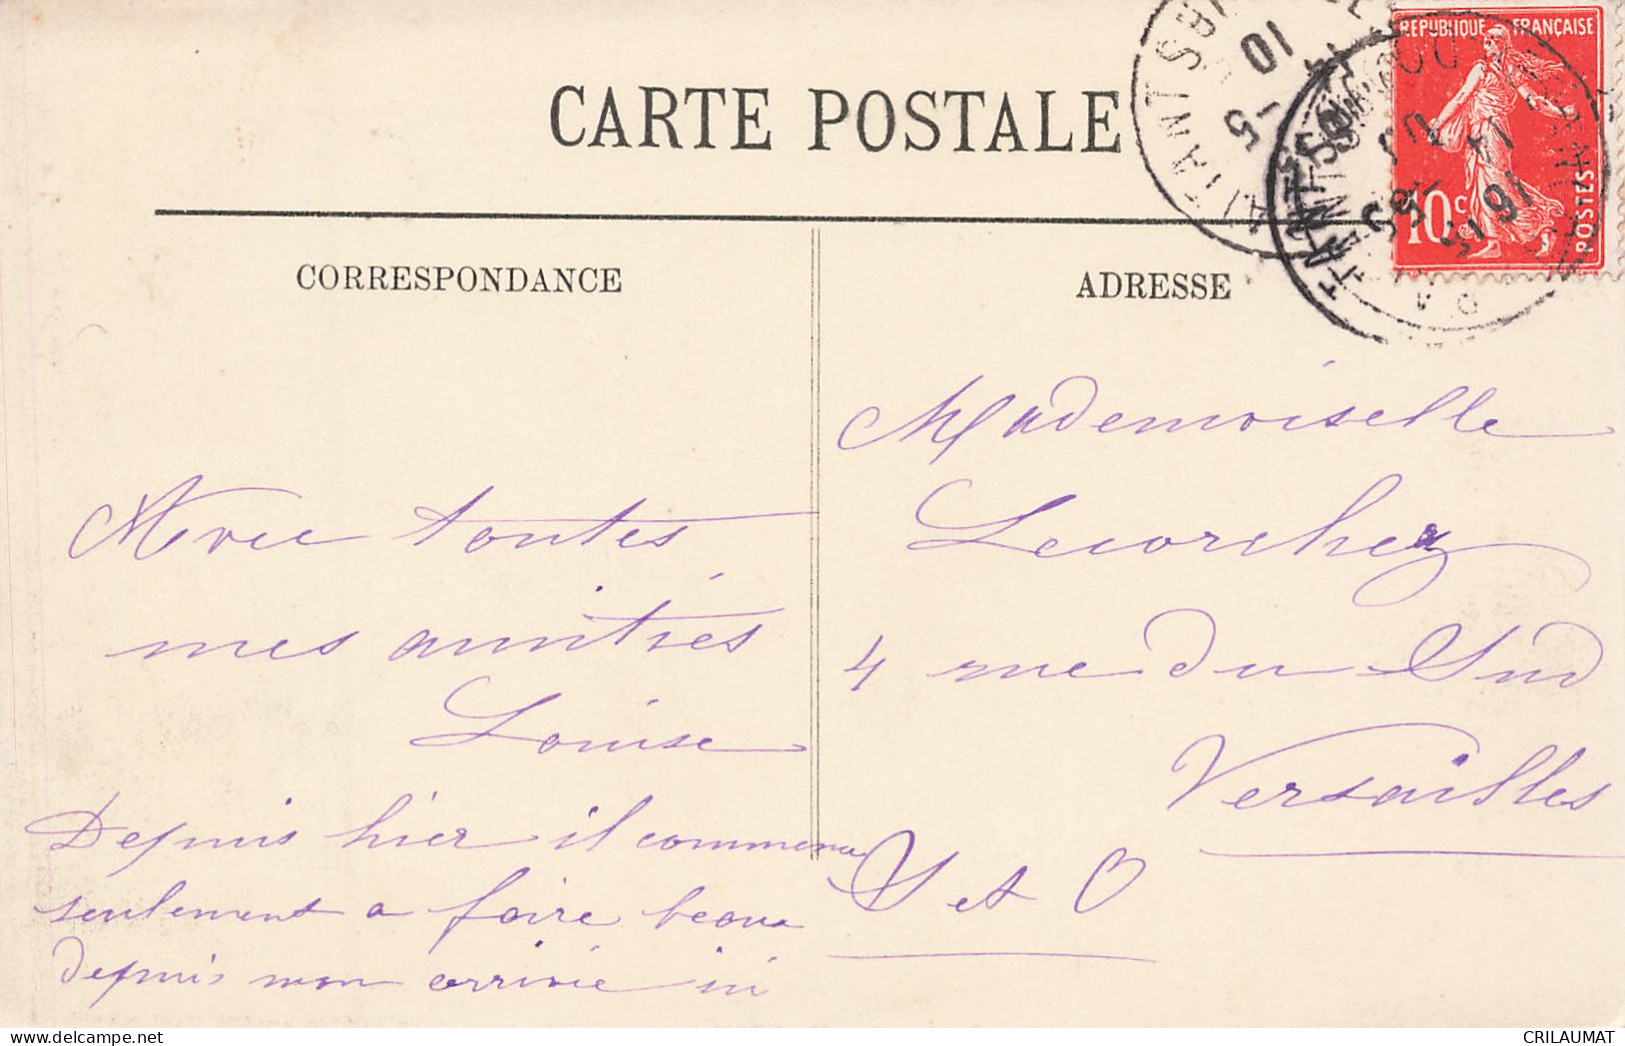 CARTE POSTALE
CORRESPONDANCE
ADRESSE
REPUBLIQUE FRANÇAISE
10c
POSTES
Avec toutes
mes amitiés
Louise
Depuis hier il commence
seulement a faire beau
depuis mon arrivée ici
Mademoiselle
Lecorchey
4 rue du Sud
Versailles
S et O
CRILAUMAT